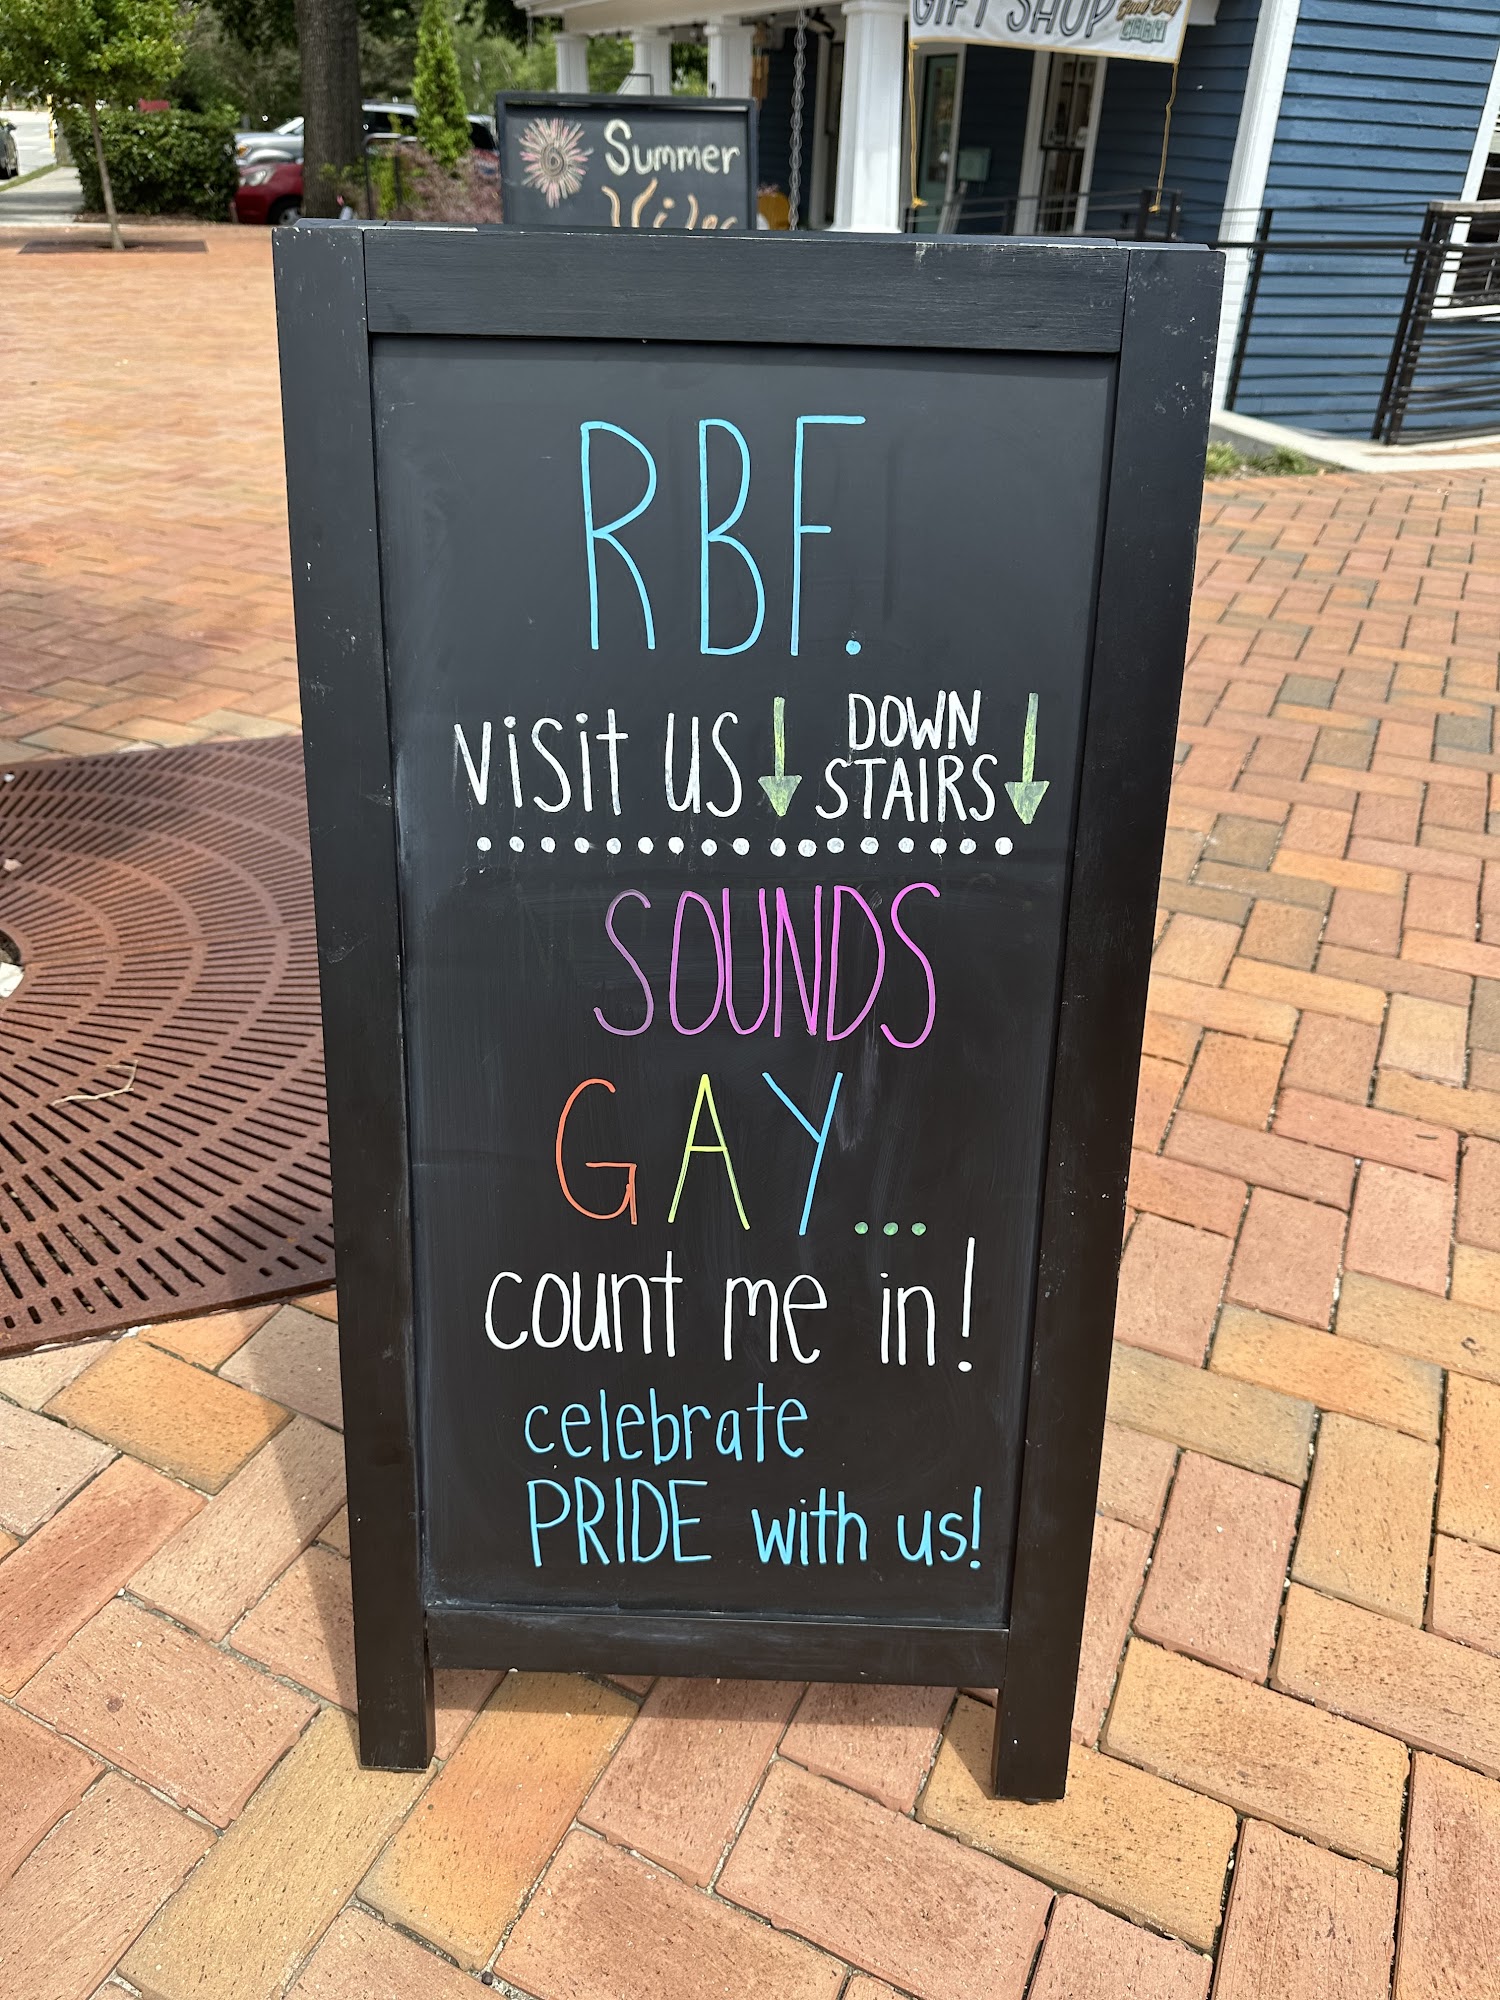 GIFT SHOP
Summer
RBF.
visit us DOWN
STAIRS
SOUNDS
GAY...
count me in!
celebrate
PRIDE with us!